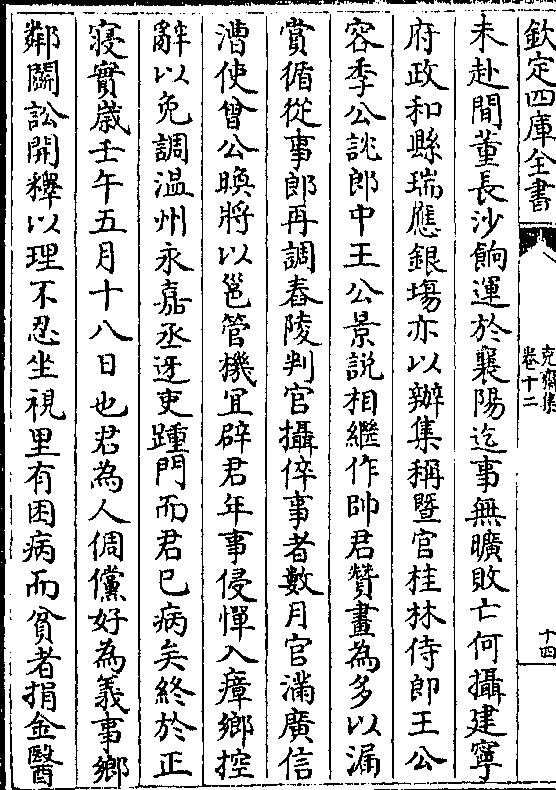 欽定四庫全書
克齋集
卷十二
十四
未赴間董長沙餉運於襄陽迄事無曠敗亡何攝建寧
府政和縣瑞應銀場亦以辦集稱暨官桂林侍郎王公
容季公詵郎中王公景説相繼作帥君賛畫為多以漏
賞循從事郎再調舂陵判官攝倅事者數月官滿廣信
漕使曾公㬇將以邕管機宜辟君年事侵憚入瘴鄉控
辭以免調温州永嘉丞迓吏踵門而君已病矣終於正
寢實嵗壬午五月十八日也君為人倜儻好為義事鄉
鄰鬬訟開釋以理不忍坐視里有困病而貧者捐金醫